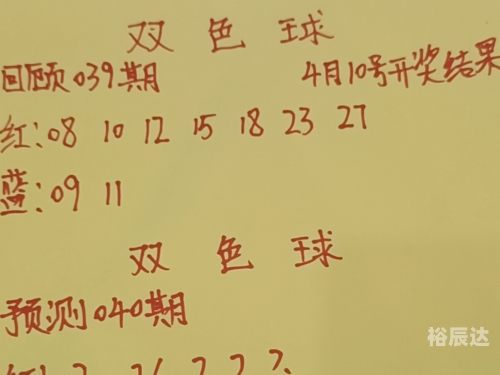 双色球
回顾039期 4月10号开奖结果
红:08 10 12 15 18 23 27
蓝:09 11
双色球
预测040期
裕辰达